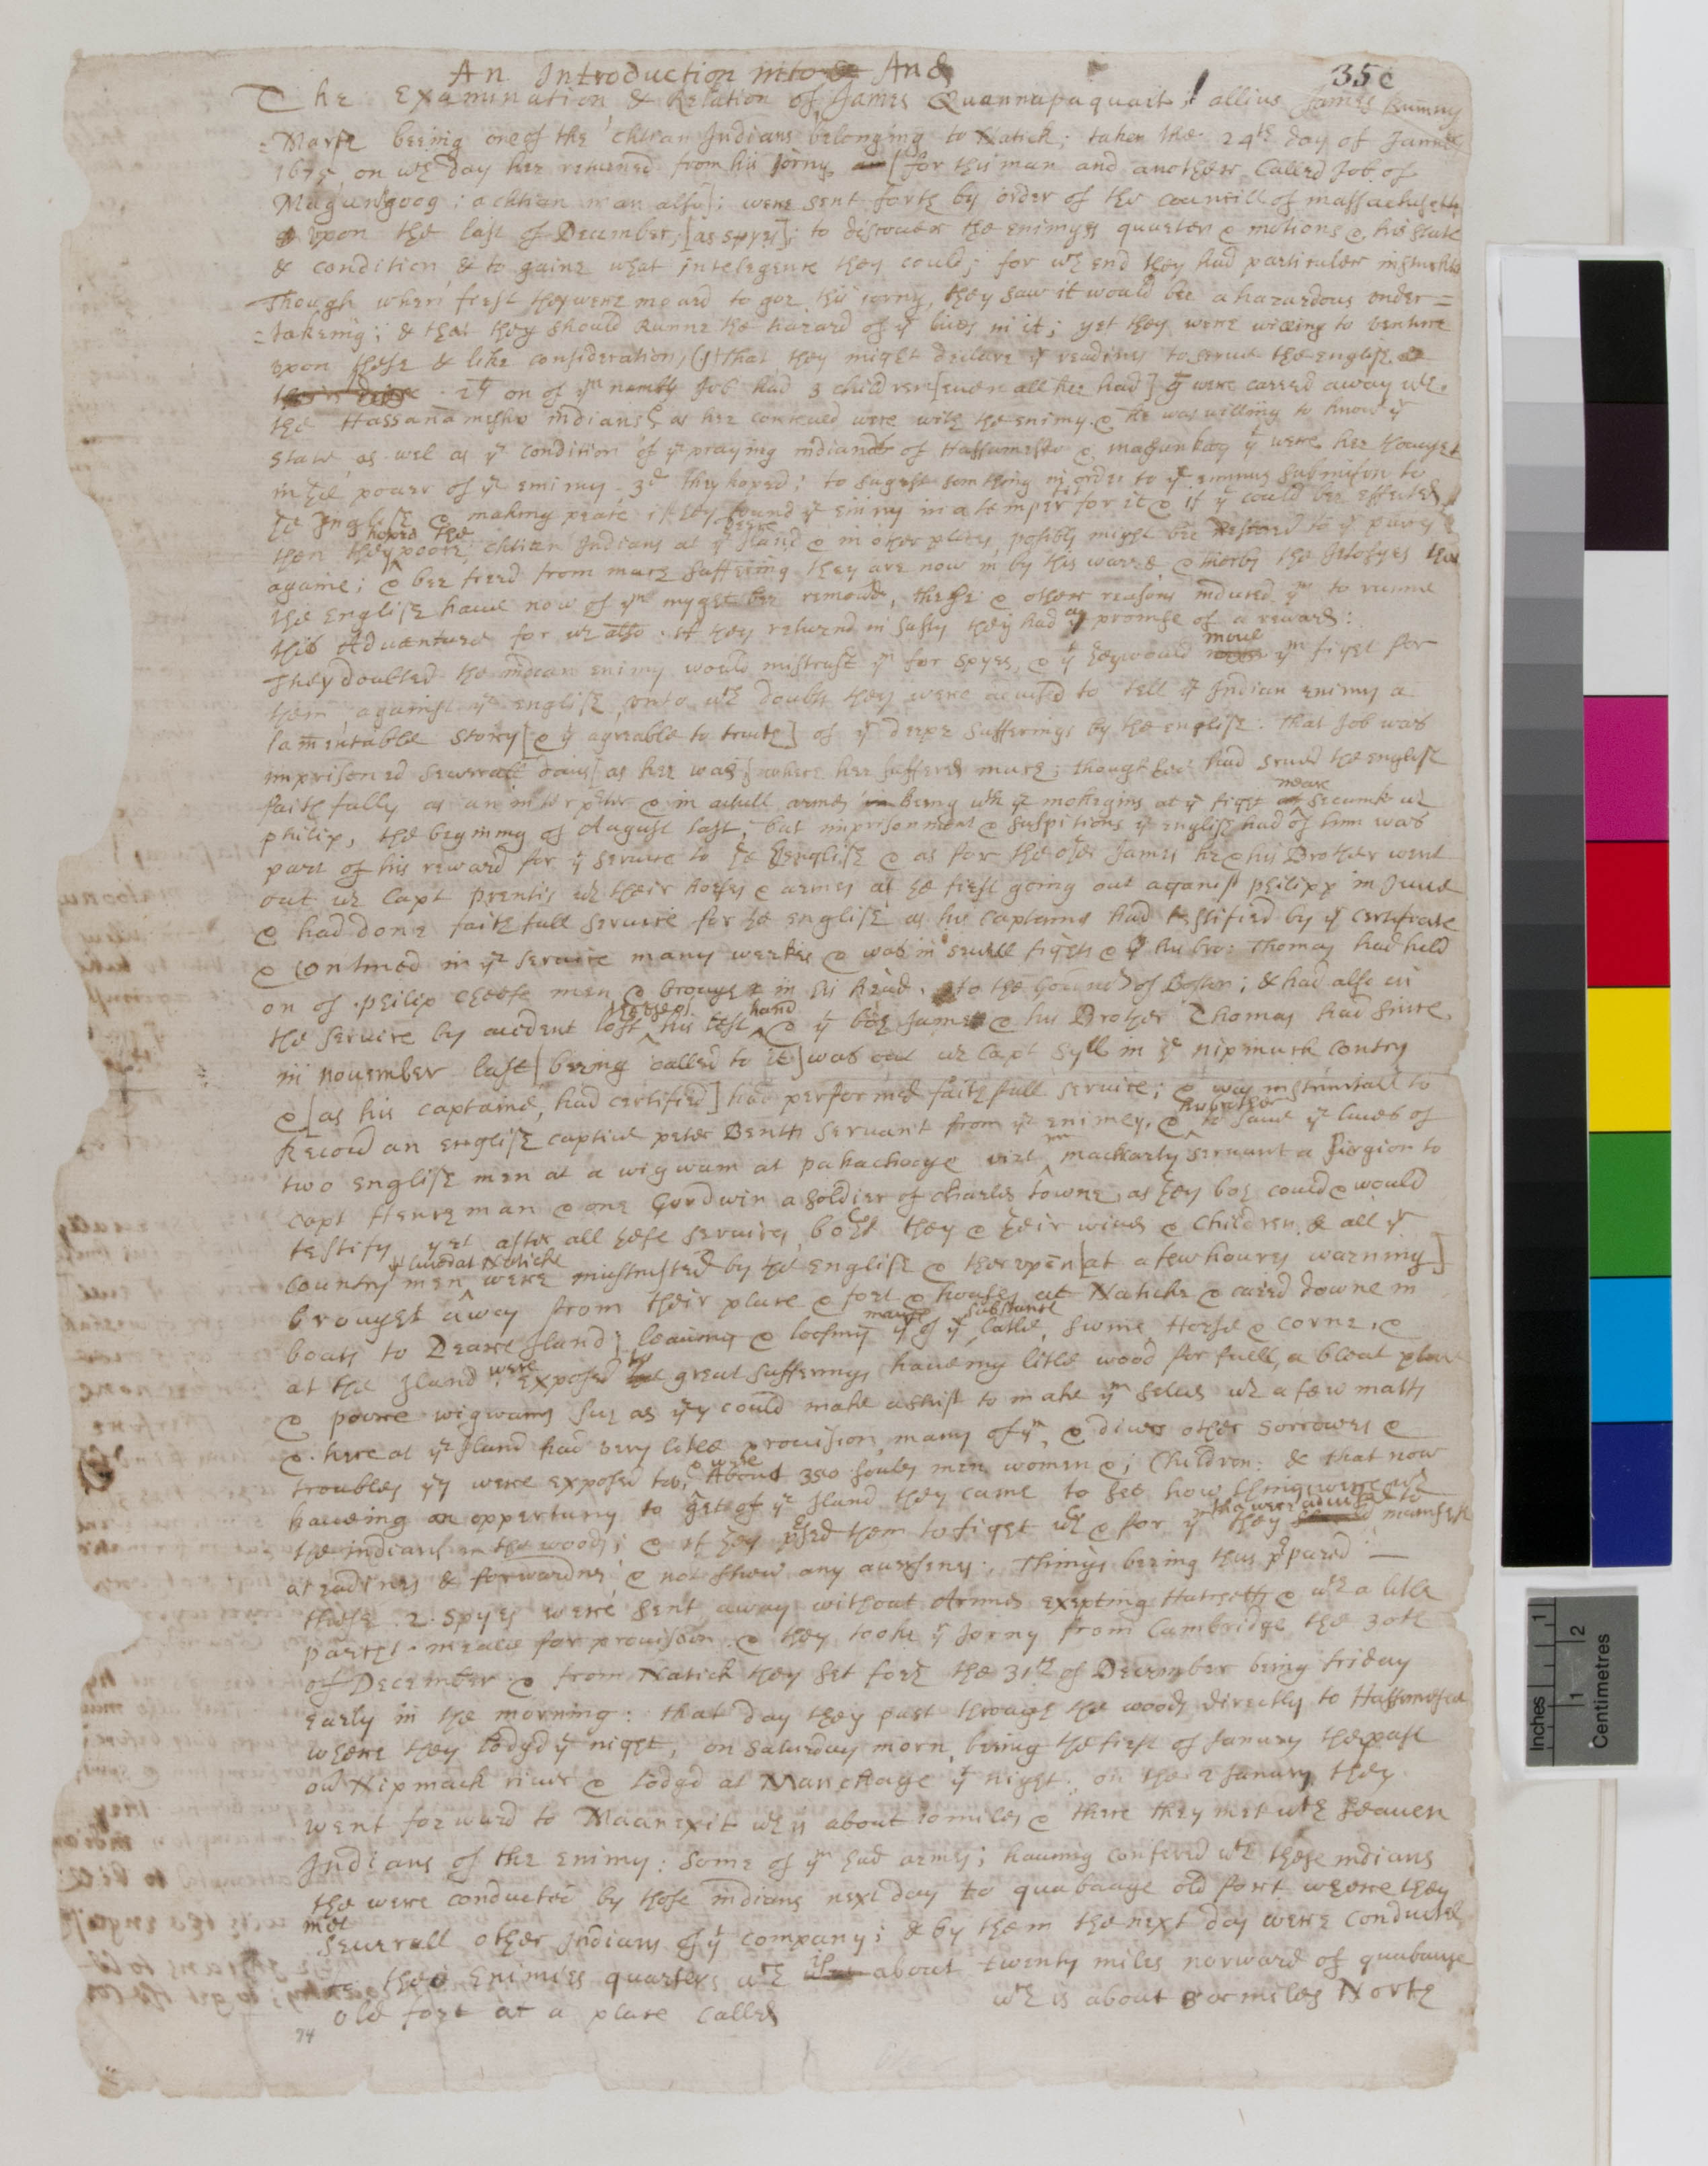 An Introduction into & And
35c
The Examination & Relation of James Quannapaquait; allius James Rumny
=Marsh beeing one of the chtian Indians belonging to Natick; taken the 24th day of Januey
1675, on wch day hee returned from his jorny, (for this man and another Called Job. of
Magunkoog: a chtian man also); were sent forth by order of the councill of massachusetts
upon the last of December, [as spyes]; to discouer the enimyes quarters & motions & his state
& condition, & to gaine what intelegence they could; for wch end they had particuler instructio
Though when first they were moued to goe this iorny, they saw it would bee a hazardous under=
=takeing; & that they should Runne the hazard of yr liues in it; yet they were willing to venture
vpon these & like consideration, (1) that they might declare yr readines to serue the english.
2ly on of ym namly Job had 3 children [euen all hee had] yt were carred away wth
the Hassanamesho indians & as hee conceued were with the enimy. & he was willing to know yr
state, as wel as ye condition of ye praying indians of Hassameshe & magunkoog yt were hee thought
in the power of ye enimy. 3d They hoped; to sugest som thing in order to ye enimies submision to
the English & making peace if they found ye enimy in a temper fit for it & if yt could bee effected
then they hoped the poore chtian Indians at ye Iland & in other places, posibly might bee restored to yr places
againe; & bee freed from much suffering they are now in by this warre & therby the jelosyes that
the English haue now of ym myght bee remoud, these & other reasons induced ym to runne
this Aduenture for wch also. if they returnd in safty they had a promise of a reward:
They doubted the indian enimy would mistrust ym for spyes, & yt they would moue ym fight for
them, against ye english, vnto wch doubt they were aduised to tell ye Indian enimy a
lamentable story [& yt agreable to truth] of yr deepe sufferings by the english. that Job was
imprisoned seuerall dayes [as hee was] where hee suffered much; though hee had serued the english
faithfully as an interpreter & in actull armes being wth ye mohegins at ye fight neare secunk wth
philip, the begining of August last; but imprisonment & suspitions ye english had of him was
part of his reward for yt seruice to the english & as for the other James he & his Brother went
out wth Capt Prentis wth their horses & armes at the first going out against philipp in June
& had done faithfull seruice for the english as his captains had testified by yr certificate
& continued in yr seruice many weekes & was in seuerll fights & yt his bro: Thomas had kild
on of philip cheefe men & brought in his head. to the Gouernor of Boston; & had also in
the seruice by accident lost the use of his left hand & yt both James & his Brother Thomas had since
in november last [being called to it] was out wth Capt Syll in ye nipmuck contry
& [as his captaine, had certified] had performed faithfull seruice; & was instrumtall to
Recoud an english captiue peter Bentts servant from ye enimey, & his brother to saue ye liues of
two english men at a wigwam at pakachooge vizt mr mackarty seruant a Cirgion to
capt Henchman & one Goodwin a soldier of charles towne, as they both could & would
testify. yet after all these seruices, both they & their wiues & Children & all yr
Country men yt liued at Naticke were mistrusted by the english & thervpon [at a few houres warning]
brought away from their place & fort & houses at Naticke & caried downe in
boats to Deare Iland; leauing & loosing much of yr substance Catle, swine, Horse & corne, &
at the Iland were exposed to great sufferings haueing litle wood for fuell, a bleak place
& poore wigwams such as they could make a shift to make ym selues wth a few matts
& here at ye Iland had very litle prouision, many of ym, & diuers other sorrowes &
troubles yy were exposed too, & were About 350 soules men women & Children: & that now
haueing an oppertuny to get of ye Iland they came to see how things were wth
the indians in the woods; & if they prsed them to fight wth & for ym they were aduised to manifest
al readines & forwardnes & not shew any auersenes; Things being thus prpared
these 2 spyes were sent away without Armes excepting Hatchetts & wth a litle
parcht meale for prouision & they tooke yr Jorny from Cambridge the 30th
of December & from Natick they set forth the 31th of December being friday
early in the morning: that day they past through the woods directly to Hassameshe
where they lodgd yt night; on saturday morn, being the first of Janury they past
our Nipmuck riuer & lodgd at Manchage yt night: on the 2 Janury they
went forward to Maanexit wch is about 10 miles & there they met wth seauen
Indians of the enimy: some of ym had armes; hauing confered wth these indians
the were conducted by those indians next day to quabauge old fort where they
met seuerall other Indians of yr company; & by them the next day were conducted
to the Enimies quarters wch is about twenty miles norward of quabauge
old fort at a place called wch is about 8 or miles North
74